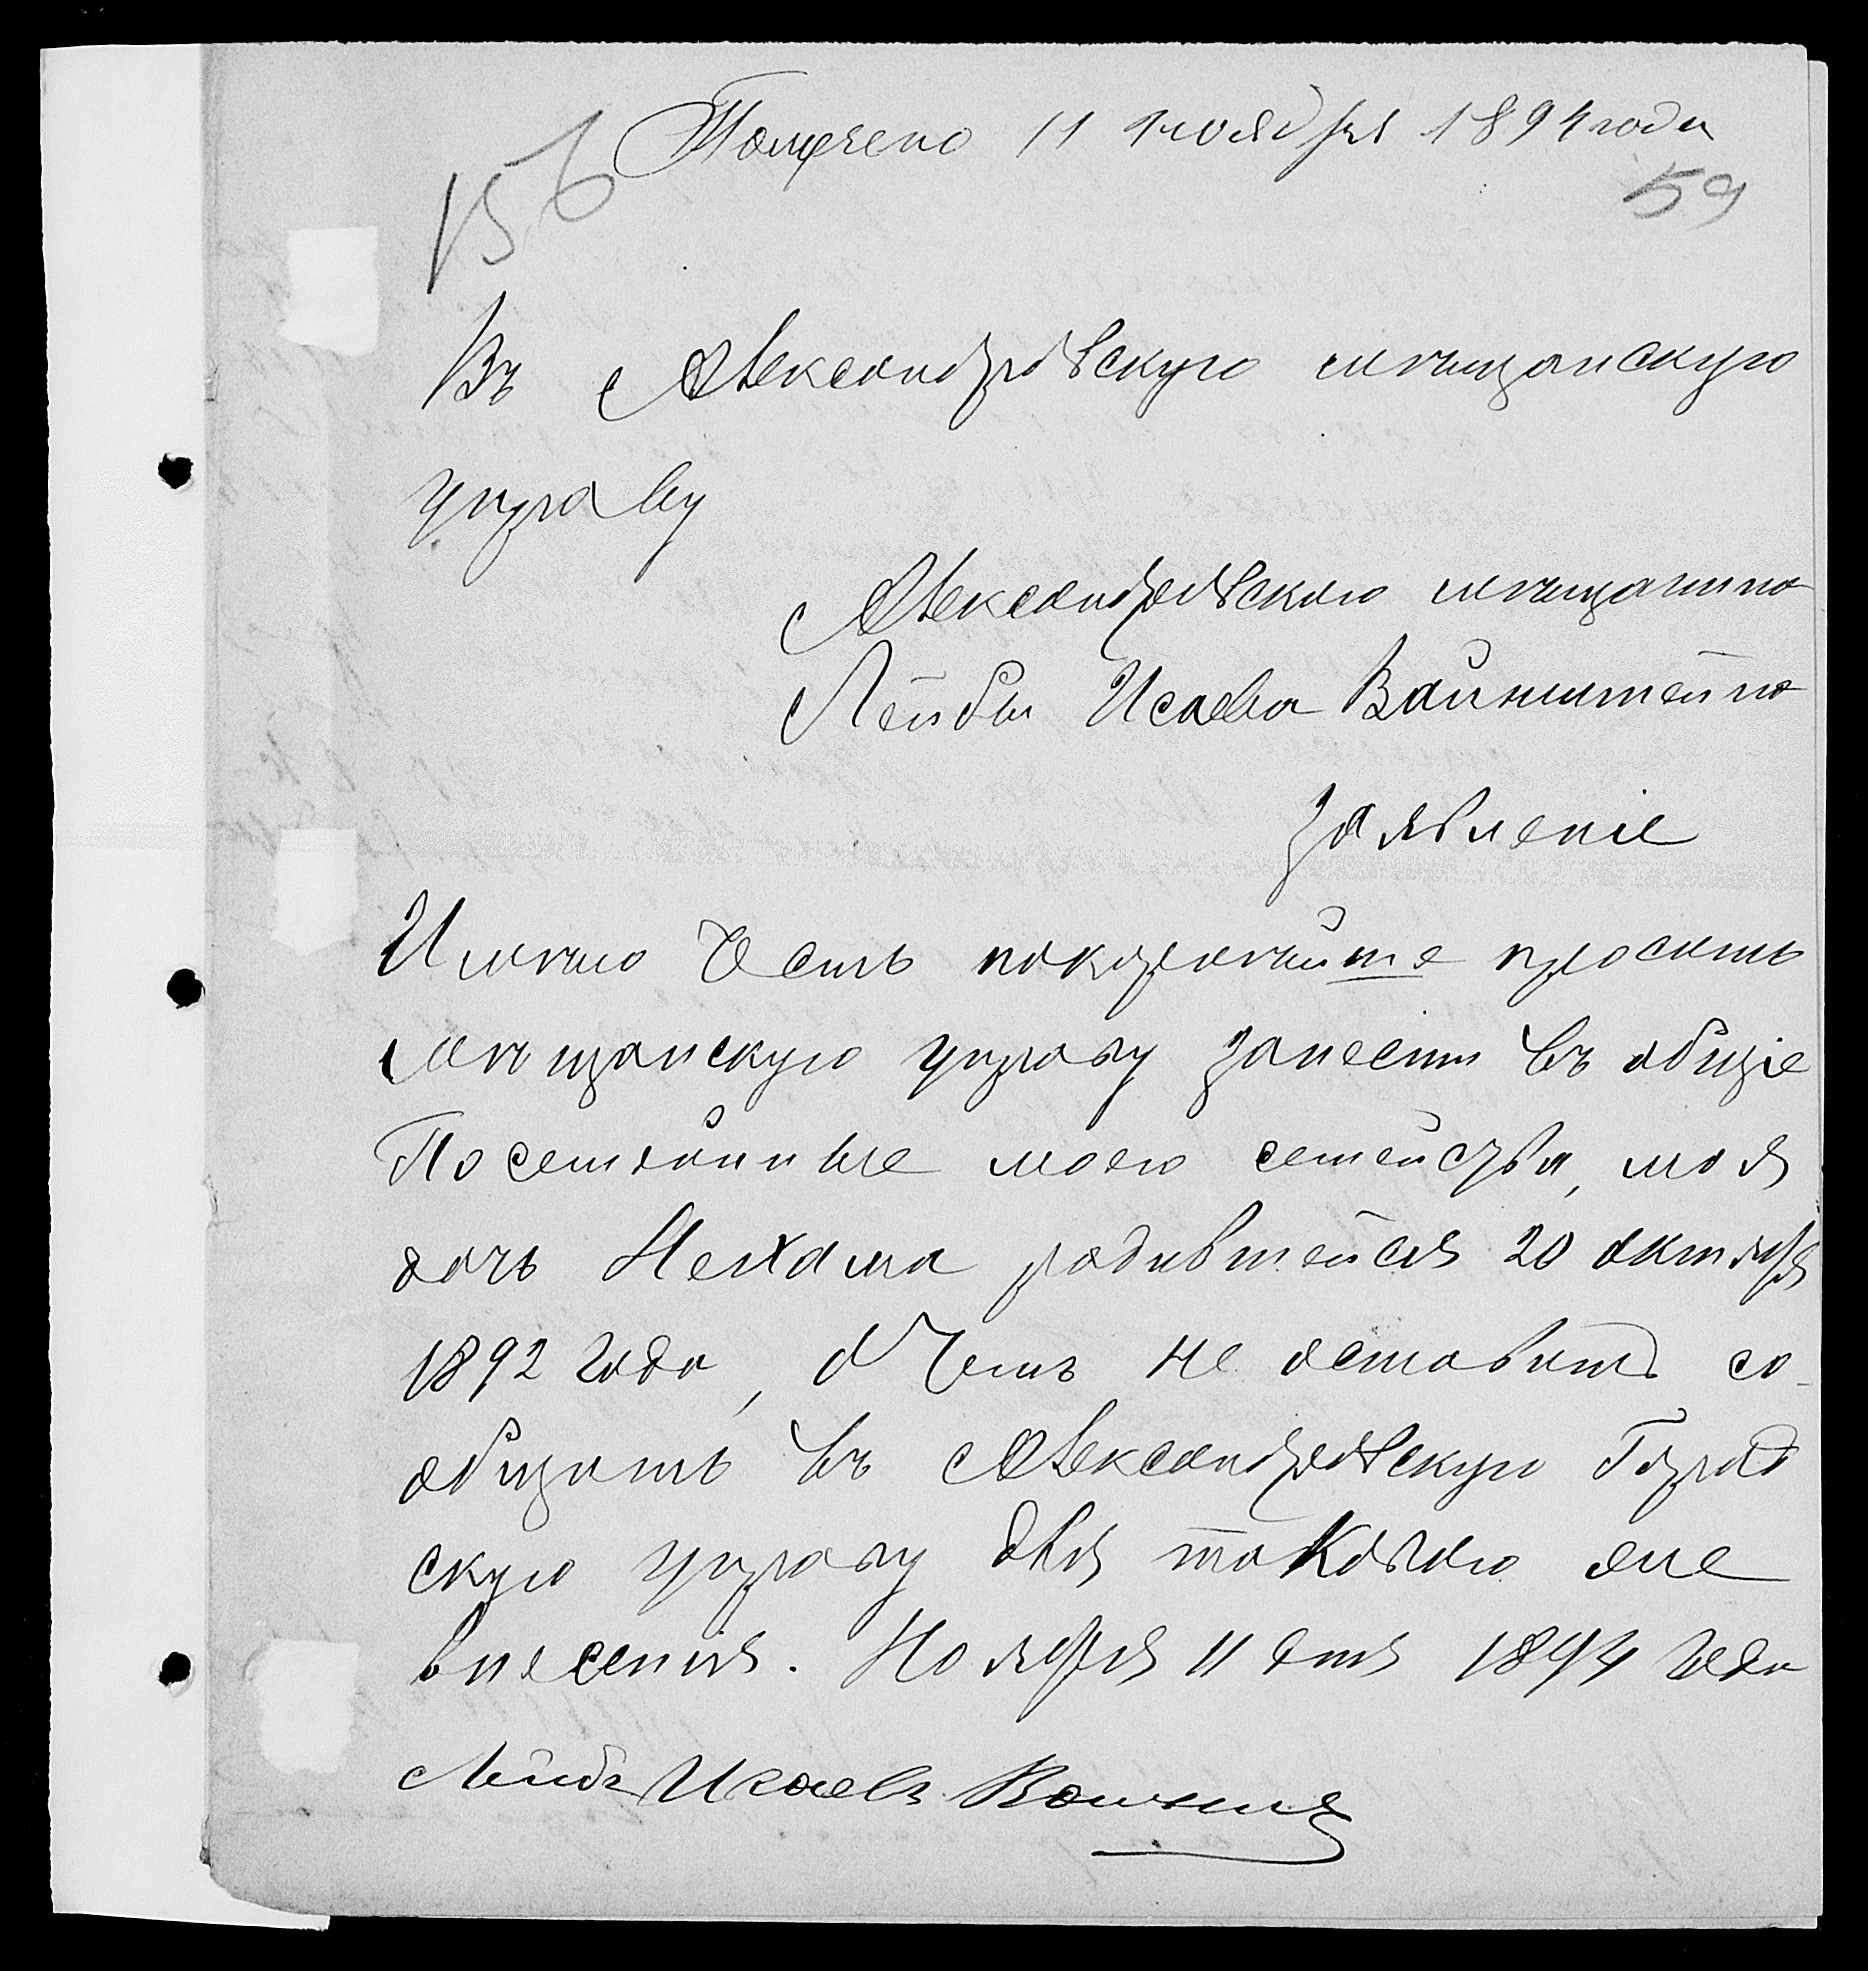 Получено 11 ноября 1894 года
156
59
Въ Александровскую мѣщанскую
управу
Александровскаго мѣщанина
Лейбы Исаева Вайнштейна
Заявленіе
Имѣю Честь покорнѣйше просить
мѣщанскую управу занести въ общіе
Посемейные моего семейства, моя
дочь Нехама родившейся 20 октября
1892 года, О Чемъ не оставить со-
общить въ Александровскую Город
скую управу для таковаго еще
внесенія. Ноября 11 дня 1894 года
Лейба Исаевъ Вайншт